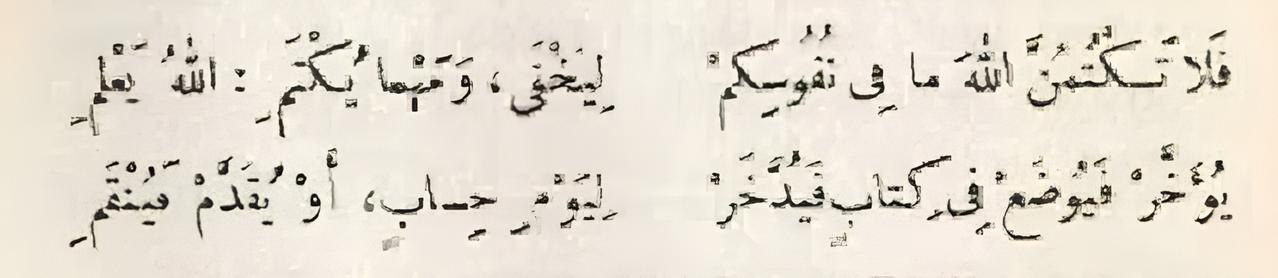 فَلَا تَكْتُمُنَّ اللهَ مَا فِي نُفُوسِكُمْ لِيَخْفَى، وَمَهْمَا يُكْتَمِ : اللهُ يَعْلَمِ
يُؤَخَّرْ فَيُوضَعْ فِي كِتَابٍ فَيُدَّخَرْ لِيَوْمِ حِسَابٍ، أَوْ يُقَدَّمْ فَيُنْقَمِ